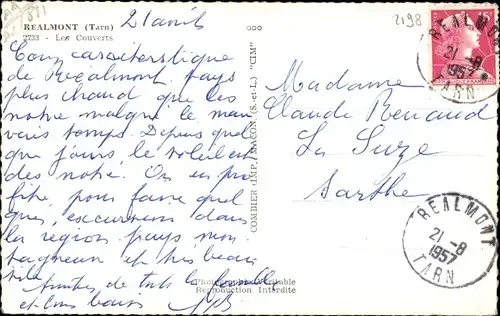 REALMONT (Tarn)
3733 - Les Couverts
21 août
Coin caractéristique
de Réalmont. Pays
plus chaud que les
nôtre malgré le mau
vais temps. Depuis quel
que jours, le soleil est
des notre. On en pro
fite, pour faire quel
ques, excursions dans
la région, pays mon
tagneux et très beau
de toute la famille
et bons baisers
COMBIER IMP. MACON (S.-et-L.) "CIM"
Photographie Véritable
Reproduction Interdite
2198
Madame
Claude Renaud
La Suze
Sarthe
15
REALMONT
21 -8
1957
TARN
REALMONT
21 -8
1957
TARN